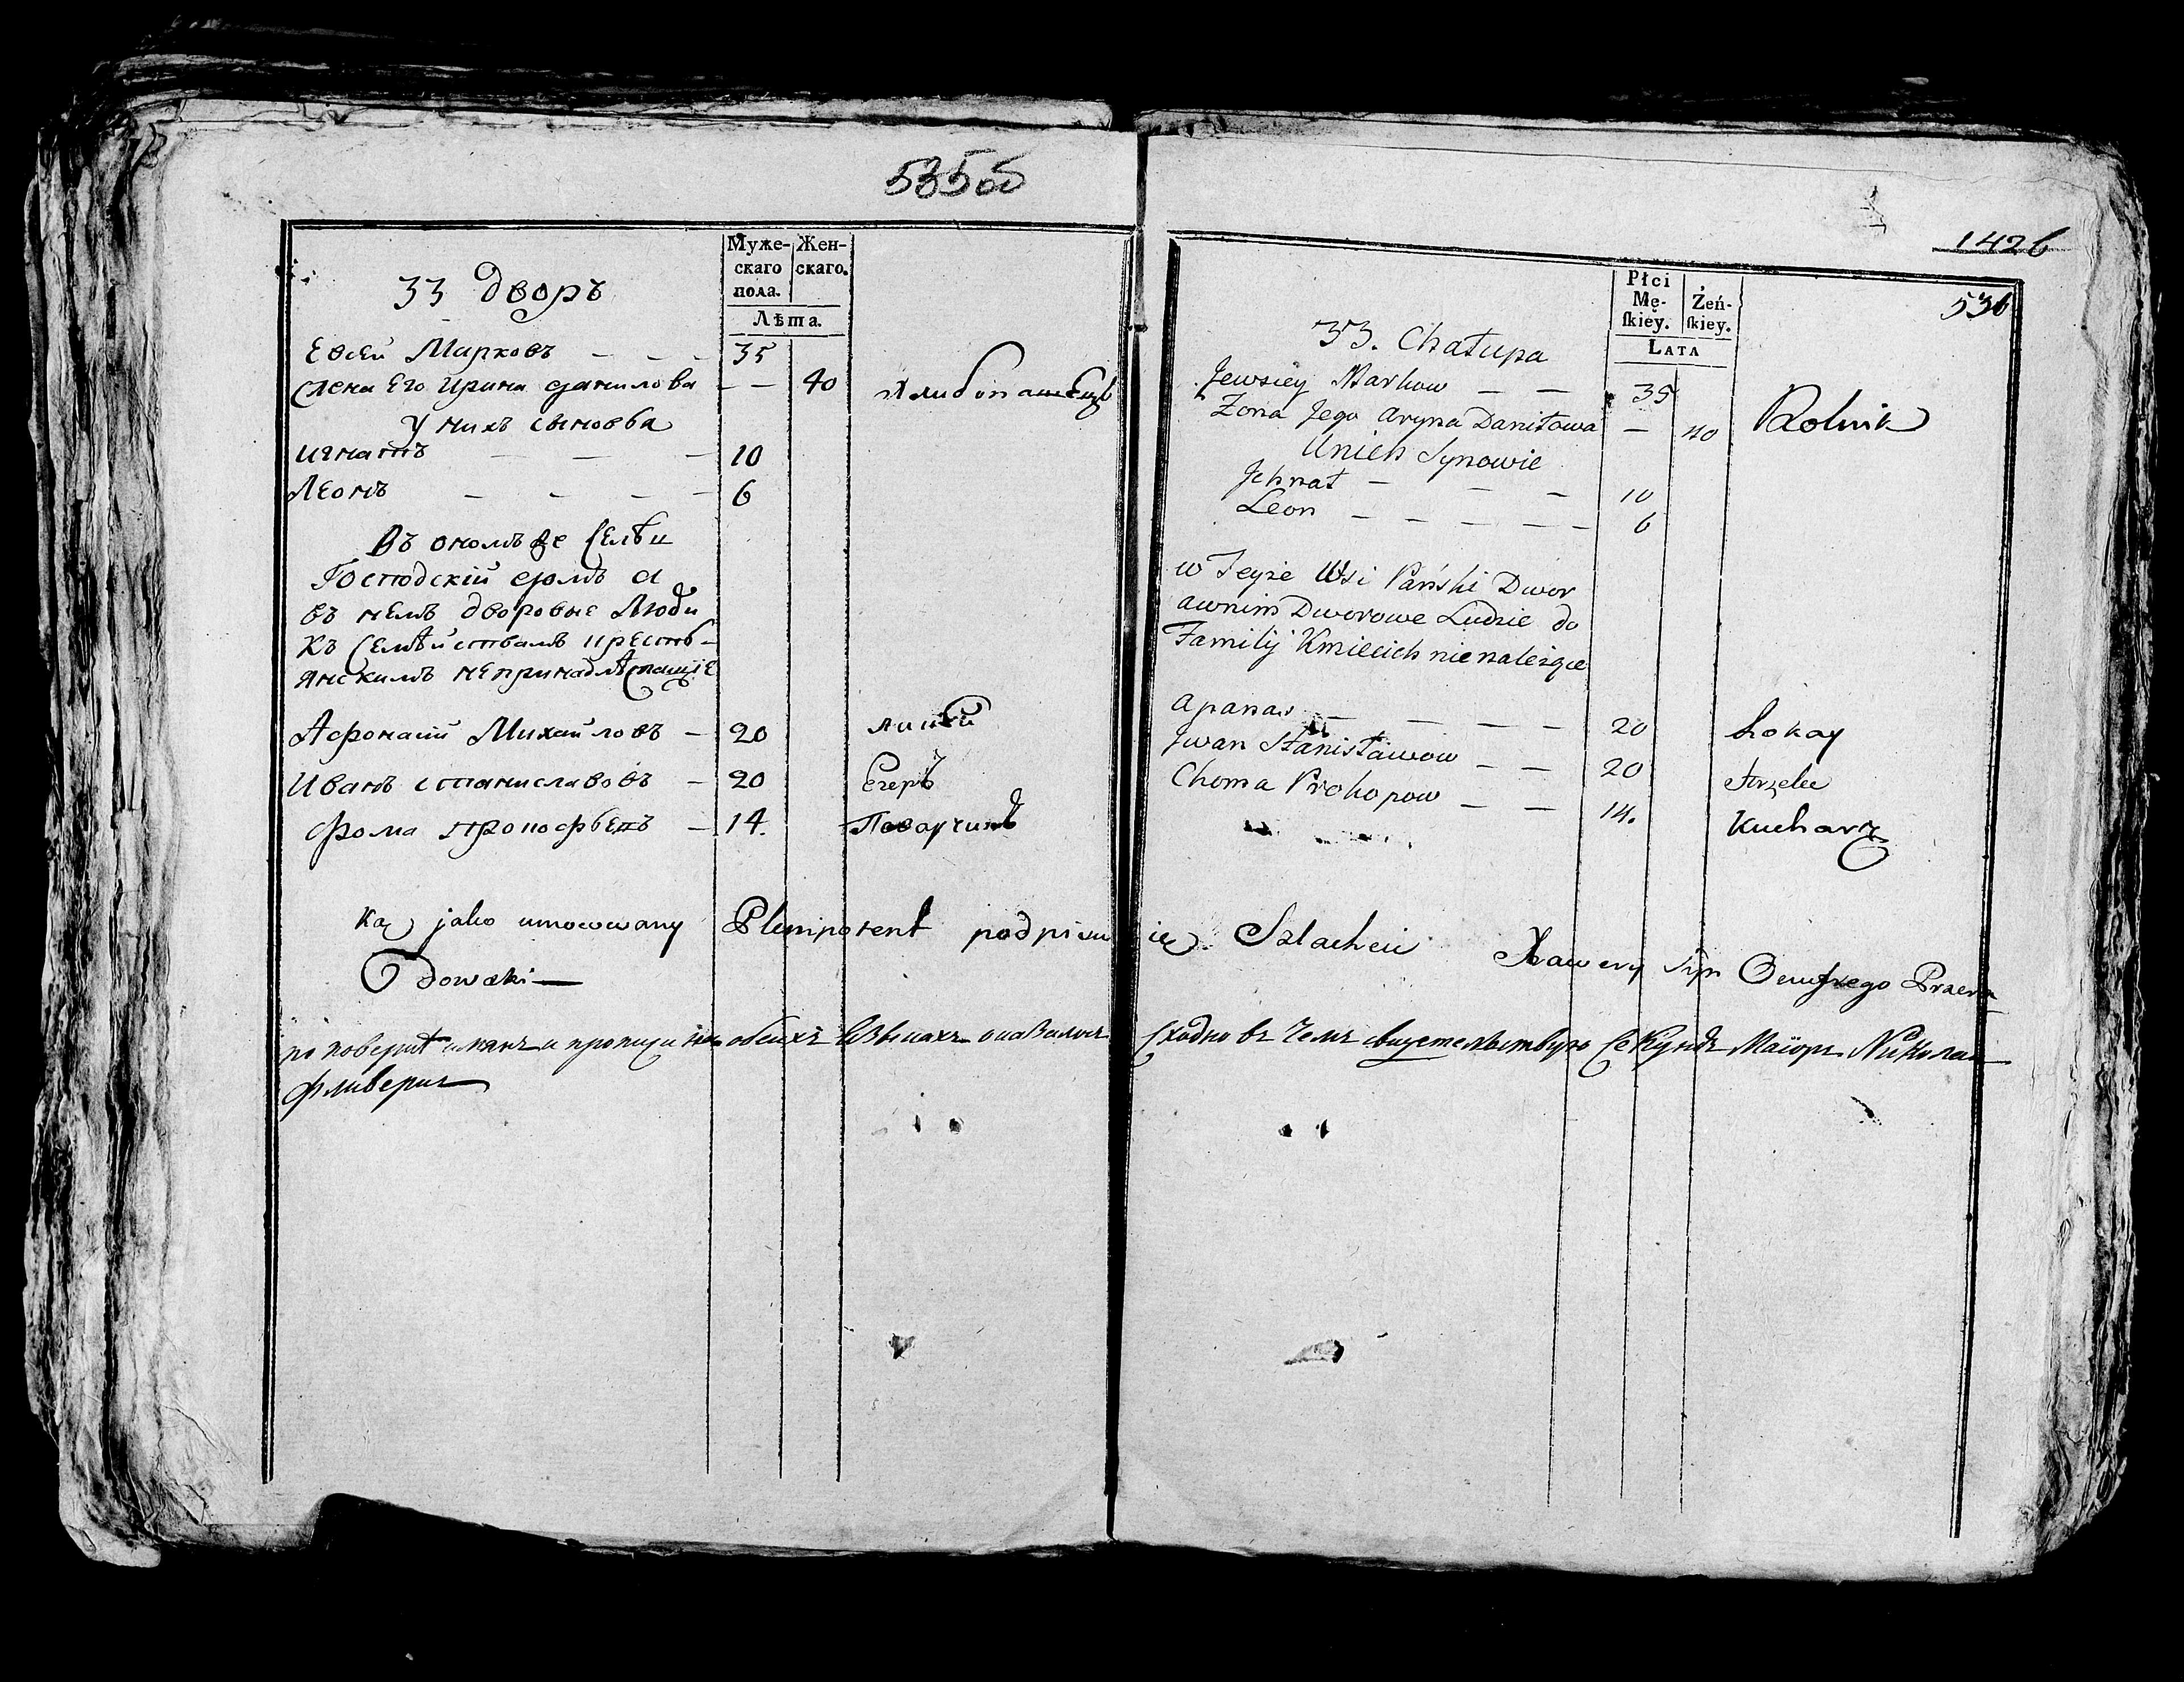 535об
Муже- Жен-
скаго скаго.
пола.
Лѣта.
33 дворъ
Евсей Марковъ — — — 35
жена Его Ирина данилова — — 40 Хлибопашецъ
у нихъ сыновья
игнатъ — — — 10
Леонъ — — — — 6
Въ ономъ же селѣи
Господскій домъ а
въ немъ дворовые Люди
къ семѣйствамъ крестѣ-
янскимъ непринадлѣжащіе
Афонасий Михайловъ — 20 лакѣй
Иванъ станиславовъ — 20 Егерь
Фома — 14. Поварчикъ
1426
536
Płci
Mę- Żeń-
ſkiey. ſkiey.
LATA
33. Chałupa
Jewsiey Markow — — 35
Zona Jego aryna Daniłowa — 40 Rolnik
Unich Synowie
Jhnat — — — 10
Leon — — — — — 6
w Teyże Wsi Pański Dwor
awnim Dworowe Ludzie do
Familij Kmiecich nienależące
apanas — — — — 20 Lokay
Jwan Stanisławow — — 20 Strzelec
Choma Prokopow — — 14. Kucharz
jako umocowany Plenipotent podpisuię Szlachcic Xawery syn Onufrego
по повѣркѣ обеихъ языкахъ оказалось сходно въ чемъ свидетельствую секундъ Маіоръ Николай